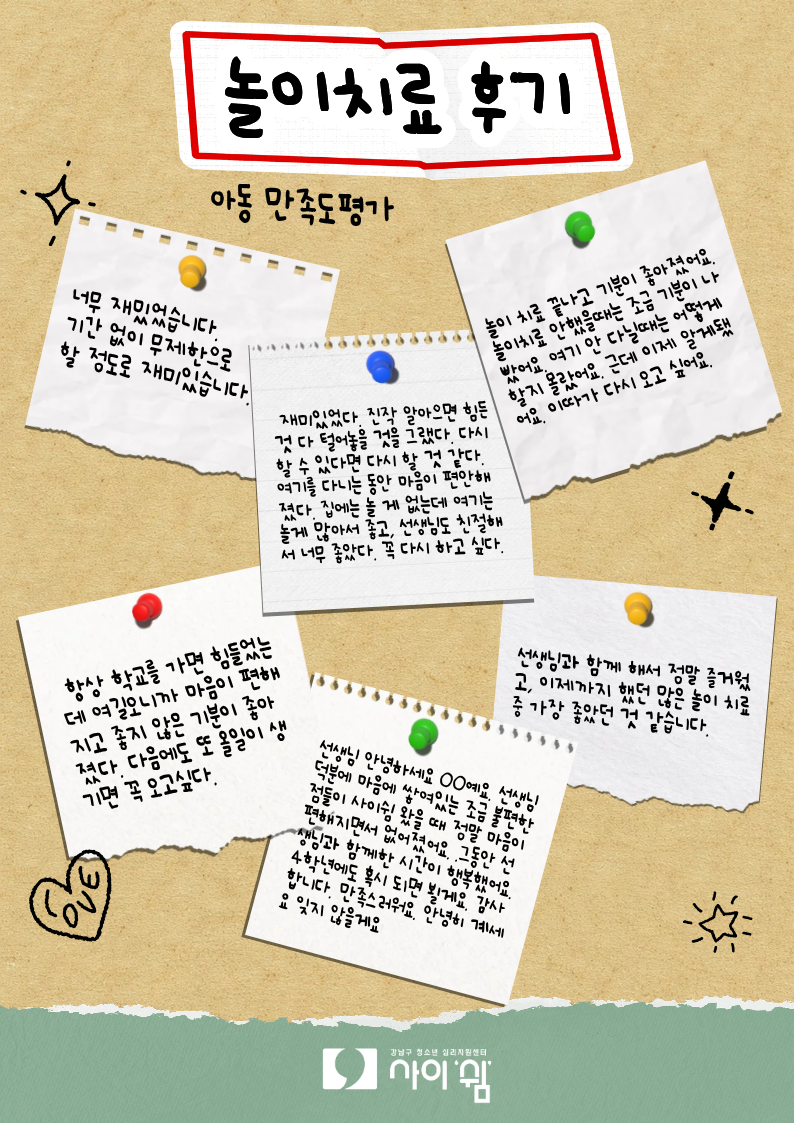 놀이치료 후기
아동 만족도평가
너무 재미있습니다.
기간 없이 무제한으로
할 정도로 재미있습니다.
놀이 치료 끝나고 기분이 좋아졌어요.
놀이치료 안했을때는 조금 기분이 나
빴어요. 여기 안 다닐때는 어떻게
할지 몰랐어요. 근데 이제 알게됐
어요. 이따가 다시 오고 싶어요.
재미있었다. 진작 알아으면 힘든
것 다 털어놓을 것을 그랬다. 다시
할 수 있다면 다시 할 것 같다.
여기를 다니는 동안 마음이 편안해
졌다. 집에는 놀 게 없는데 여기는
놀게 많아서 좋고, 선생님도 친절해
서 너무 좋았다. 꼭 다시 하고 싶다.
항상 학교를 가면 힘들었는
데 여길오니까 마음이 편해
지고 좋지 않은 기분이 좋아
졌다. 다음에도 또 올일이 생
기면 꼭 오고싶다.
선생님과 함께 해서 정말 즐거웠
고, 이제까지 했던 많은 놀이 치료
중 가장 좋았던 것 같습니다.
선생님 안녕하세요 〇〇예요. 선생님
덕분에 마음에 쌓여있는 조금 불편한
점들이 사이쉼 왔을 때 정말 마음이
편해지면서 없어졌어요. .그동안 선
생님과 함께한 시간이 행복했어요.
4학년에도 혹시 되면 뵐게요. 감사
합니다. 만족스러워요. 안녕히 계세
요 잊지 않을게요
LOVE
강남구 청소년 심리지원센터
사이쉼